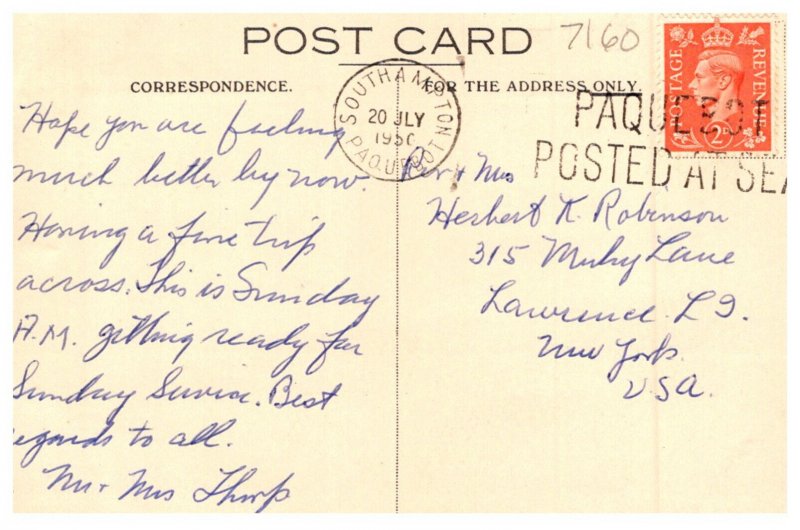 POST CARD
7160
CORRESPONDENCE.
FOR THE ADDRESS ONLY.
SOUTHAMPTON
20 JLY
PAQUEBOT
POSTAGE
REVENUE
2D
PAQUEBOT
POSTED AT SEA
Hope you are feeling
much better by now.
Having a fine trip
across. This is Sunday
A.M. getting ready for
Sunday Service. Best
egards to all.
Mr + Mrs Thorp
Rev + Mrs
Herbert K. Robinson
315 Lane
Lawrence. L I.
New York.
USA.